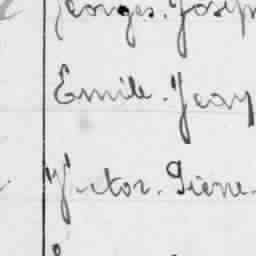 Georges. Joseph
Emile. Jean
Victor. Pierre.